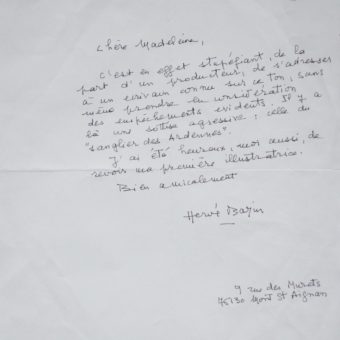 Chère Madeleine,
c'est en effet stupéfiant, de la
part d'un producteur, de s'adresser
à un écrivain connu sur ce ton, sans
même prendre en considération
des empêchements évidents. Il y a
là une sottise agressive : celle du
"sanglier des Ardennes".
J'ai été heureux, moi aussi, de
revoir ma première illustratrice.
Bien amicalement
Hervé Bazin
9 rue des Murets
76130 Mont St Aignan